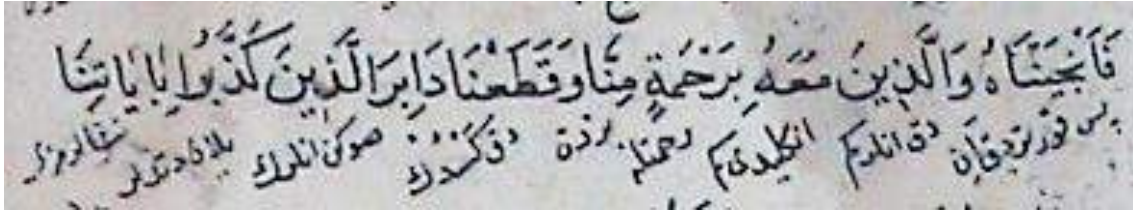 فَاَنْجَيْنَاهُ وَالَّذِينَ مَعَهُ بِرَحْمَةٍ مِنَّا وَقَطَعْنَا دَابِرَ الَّذِينَ كَذَّبُوا بِاٰيَاتِنَا
پس قورتردق انى دخى انلرى كم انكليدى رحمتله بزدن دخى كسدك صوكن انلروك